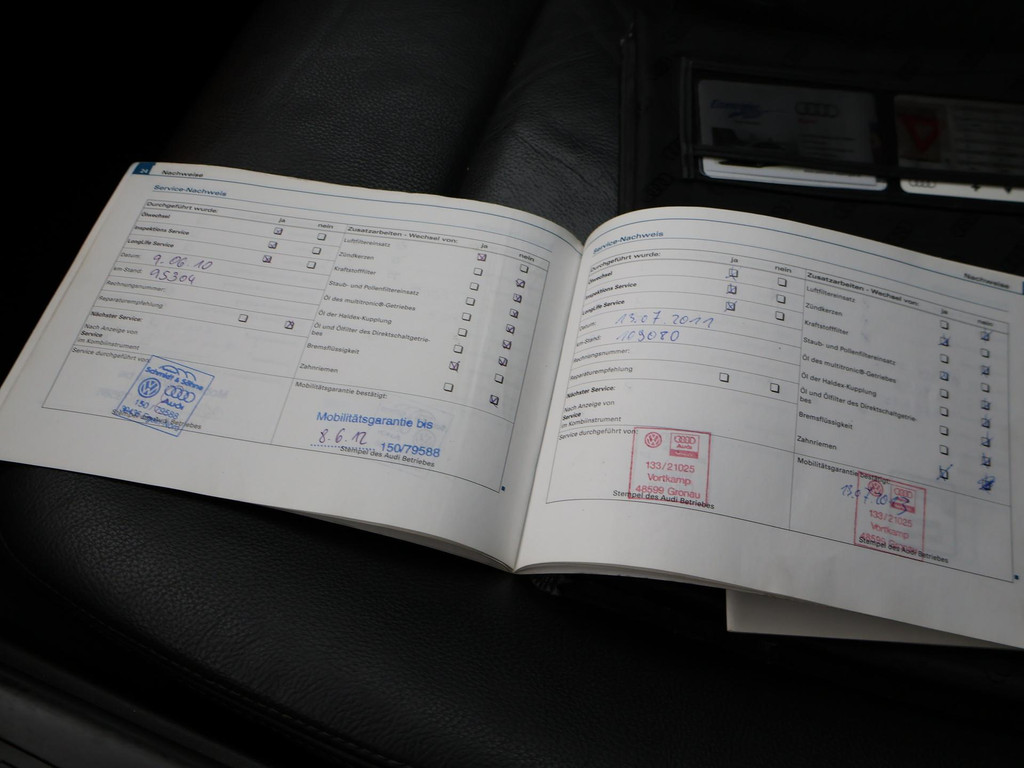 24 Nachweise
Service-Nachweis
Durchgeführt wurde: ja nein
Ölwechsel
Inspektions Service
LongLife Service
Datum: 9.06.10
km-Stand: 95304
Rechnungsnummer:
Reparaturempfehlung
Nächster Service:
Nach Anzeige von
Service
im Kombiinstrument
Service durchgeführt von:
Schmidt & Söhne
Audi
150 / 79588
Stempel des Audi Betriebes
Zusatzarbeiten - Wechsel von: ja nein
Luftfiltereinsatz
Zündkerzen
Kraftstofffilter
Staub- und Pollenfiltereinsatz
Öl des multitronic®-Getriebes
Öl der Haldex-Kupplung
Öl und Ölfilter des Direktschaltgetrie-
bes
Bremsflüssigkeit
Zahnriemen
Mobilitätsgarantie bestätigt:
Mobilitätsgarantie bis
8.6.12 150/79588
Stempel des Audi Betriebes
Nachweise
Service-Nachweis
Durchgeführt wurde: ja nein
Ölwechsel
Inspektions Service
LongLife Service
Datum: 13.07.2011
km-Stand: 109080
Rechnungsnummer:
Reparaturempfehlung
Nächster Service:
Nach Anzeige von
Service
im Kombiinstrument
Service durchgeführt von:
Audi
133/21025
Vortkamp
48599 Gronau
Stempel des Audi Betriebes
Zusatzarbeiten - Wechsel von: ja nein
Luftfiltereinsatz
Zündkerzen
Kraftstofffilter
Staub- und Pollenfiltereinsatz
Öl des multitronic®-Getriebes
Öl der Haldex-Kupplung
Öl und Ölfilter des Direktschaltgetrie-
bes
Bremsflüssigkeit
Zahnriemen
Mobilitätsgarantie bestätigt:
133/21025
Vortkamp
48599 Gronau
Stempel des Audi Betriebes